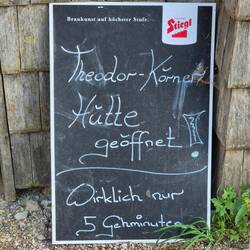 Braukunst auf höchster Stufe.
Stiegl
Theodor-Körner
Hütte
geöffnet!
Wirklich nur
5 Gehminuten